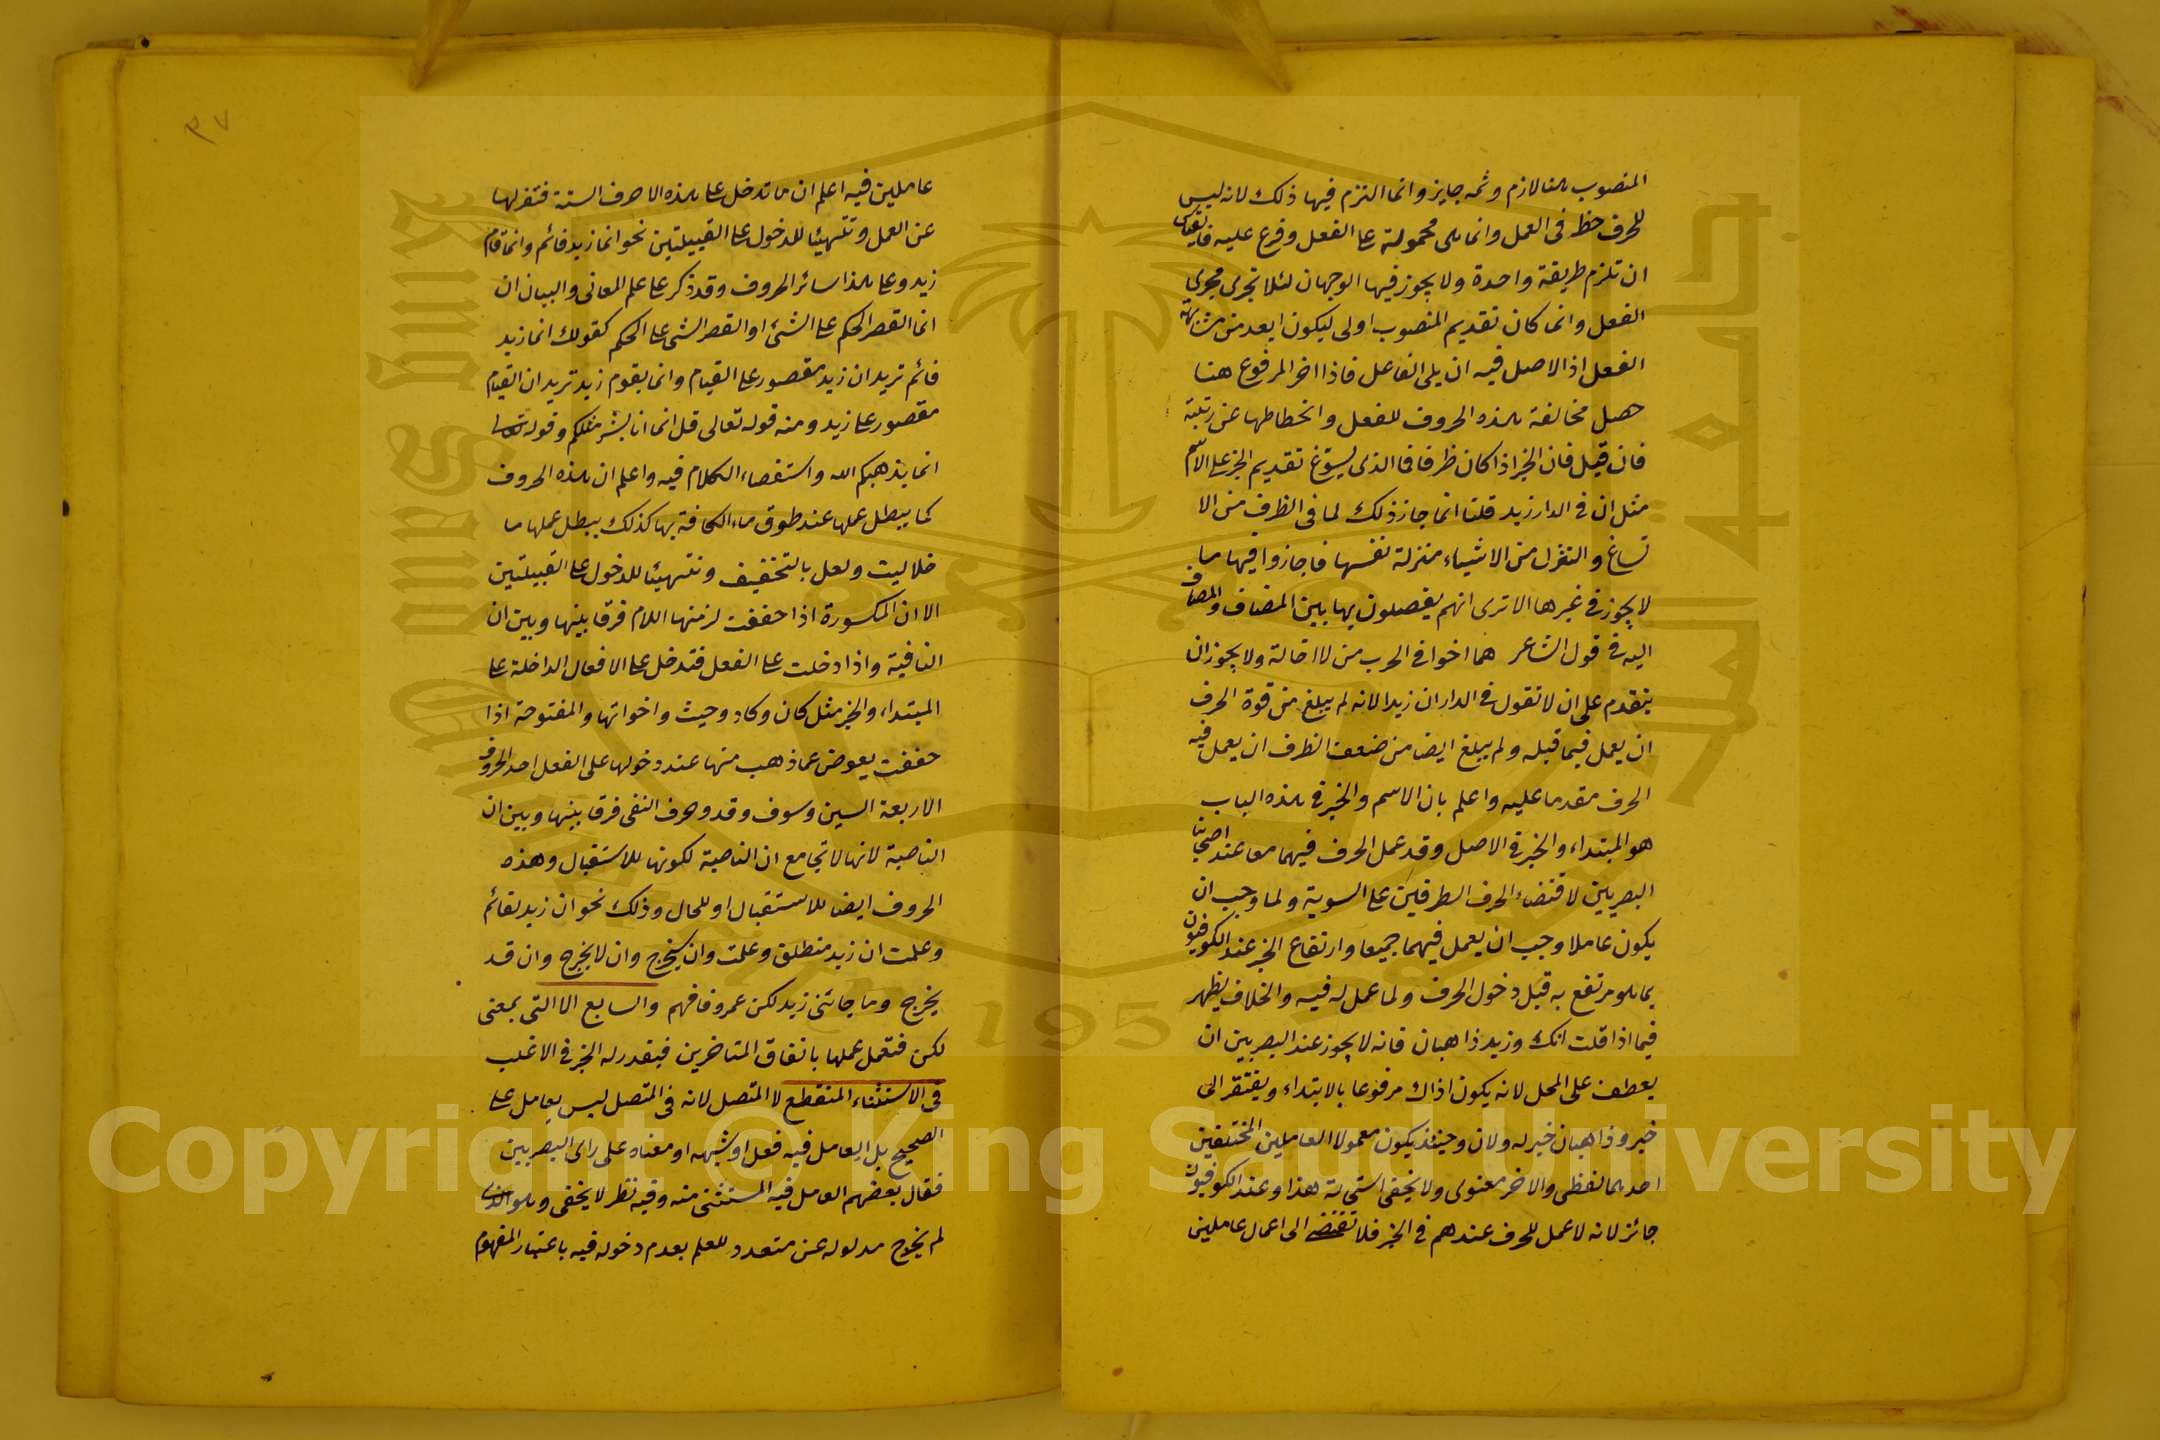 المنصوب هنا لازم وثمه جايز وانما التزم فيها ذلك لانه ليس
للحرف حظ فى العمل وانما هى محمولة على الفعل وفرع عليه
ان تلزم طريقة واحدة ولا يجوز فيها الوجهان لئلا تجرى مجرى
الفعل وانما كان تقديم المنصوب اولى ليكون ابعد من مشابهة
الفعل اذ الاصل فيه ان يلى الفاعل فاذا اخر المرفوع هنا
حصل مخالفة هذه الحروف للفعل وانحطاطها عن رتبته
فان قيل فان الخبر اذا كان ظرفا فما الذى يسوّغ تقديم الخبر على الاسم
مثل ان فى الدار زيد قلنا انما جاز ذلك لما فى الظرف من الا
تساغ والتنزل من الاشياء منزلة نفسها فاجازوا فيها ما
لا يجوز فى غيرها الا ترى انهم يفصلون بها بين المضاف والمضاف
اليه فى قول الشاعر هما اخوا فى الحرب من لا اخا له ولا يجوز ان
يتقدم على ان لا تقول فى الدار ان زيدا لانه لم يبلغ من قوة الحرف
ان يعمل فيما قبله ولم يبلغ ايضا من ضعف الظرف ان يعمل فيه
الحرف مقدما عليه واعلم بان الاسم والخبر فى هذه الباب
هو المبتداء والخبر فى الاصل وقد عمل الحرف فيهما معا عند اصحابنا
البصريين لاقتضاء الحرف الطرفين على السوية ولما وجب ان
يكون عاملا وجب ان يعمل فيهما جميعا وارتفاع الخبر عند الكوفيون
بما هو مرتفع به قبل دخول الحرف ولما عمل له فيه والخلاف يظهر
فيما اذا قلت انك وزيد ذاهبان فانه لا يجوز عند البصريين ان
يعطف على المحل لانه يكون اذاك مرفوعا بالابتداء ويفتقر الى
خبر وذاهبان خبر له ولان وحينئذ يكون معمولا العاملين المختلفين
احدهما لفظى والاخر معنوى ولا يخفى استحالة هذا وعند الكوفيون
جائز لانه لا عمل للحرف عندهم فى الخبر فلا تقتضى الى اعمال عاملين
٩٧
عاملين فيه اعلم ان ما تدخل على هذه الاحرف الستة فتعزلها
عن العمل وتتهيئا للدخول على القبيلتين نحو انما زيد قائم وانما قام
زيد وعلى هذا سائر الحروف وقد ذكر على علم المعانى والبيان ان
انما القصر الحكم على الشئ او القصر الشى على الحكم كقولك انما زيد
قائم تريد ان زيد مقصور على القيام وانما يقوم زيد تريد ان القيام
مقصور على زيد ومنه قوله تعالى قل انما انا بشر مثلكم وقوله تعالى
انما يذهبكم الله واستقصاء الكلام فيه واعلم ان هذه الحروف
كما يبطل عملها عند طوق ماء الكافة بها كذلك يبطل عملها ما
خلا ليت ولعل بالتخفيف وتتهيئا للدخول على القبيلتين
الا ان المكسورة اذا خففت لزمتها اللام فرقا بينها وبين ان
النافية واذا دخلت على الفعل فتدخل على الافعال الداخلة على
المبتداء والخبر مثل كان وكاد وحيث واخواتها والمفتوحة اذا
خففت يعوض عما ذهب منها عند دخولها على الفعل احد الحروف
الاربعة السين وسوف وقد وحرف النفى فرقا بينها وبين ان
الناصبة لانها لا تجامع ان الناصبة لكونها للاستقبال وهذه
الحروف ايضا للاستقبال او للحال وذلك نحو ان زيد لقائم
وعلمت ان زيد منطلق وعلمت وان سيخرج وان لا يخرج وان قد
يخرج وما جائنى زيد لكن عمرو فافهم والسابع الا التى بمعنى
لكن فتعمل عملها باتفاق المتاخرين فيقدر له الخبر فى الاغلب
فى الاستثناء المنقطع لا المتصل لانه فى المتصل ليس بعامل على
الصحيح بل العامل فيه فعل او شبهه او معناه على راى البصريين
فقال بعضهم العامل فيه المستثنى منه وفيه نظر لا يخفى وهو الذى
لم يخرج مدلوله عن متعدد للعلم بعدم دخوله فيه باعتبار المفهوم
Copyright © King Saud University
King Saud University
جامعة الملك سعود
1957